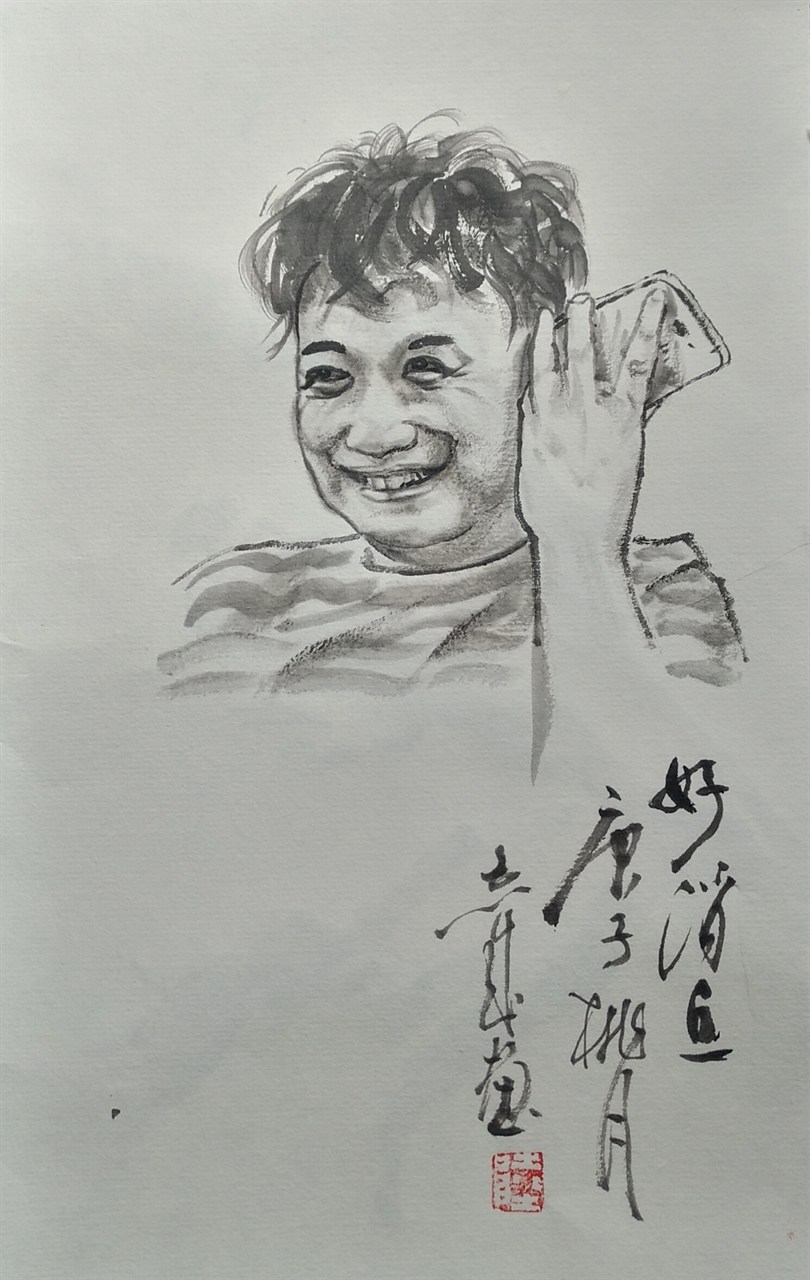 好消息
庚子桃月
志 画